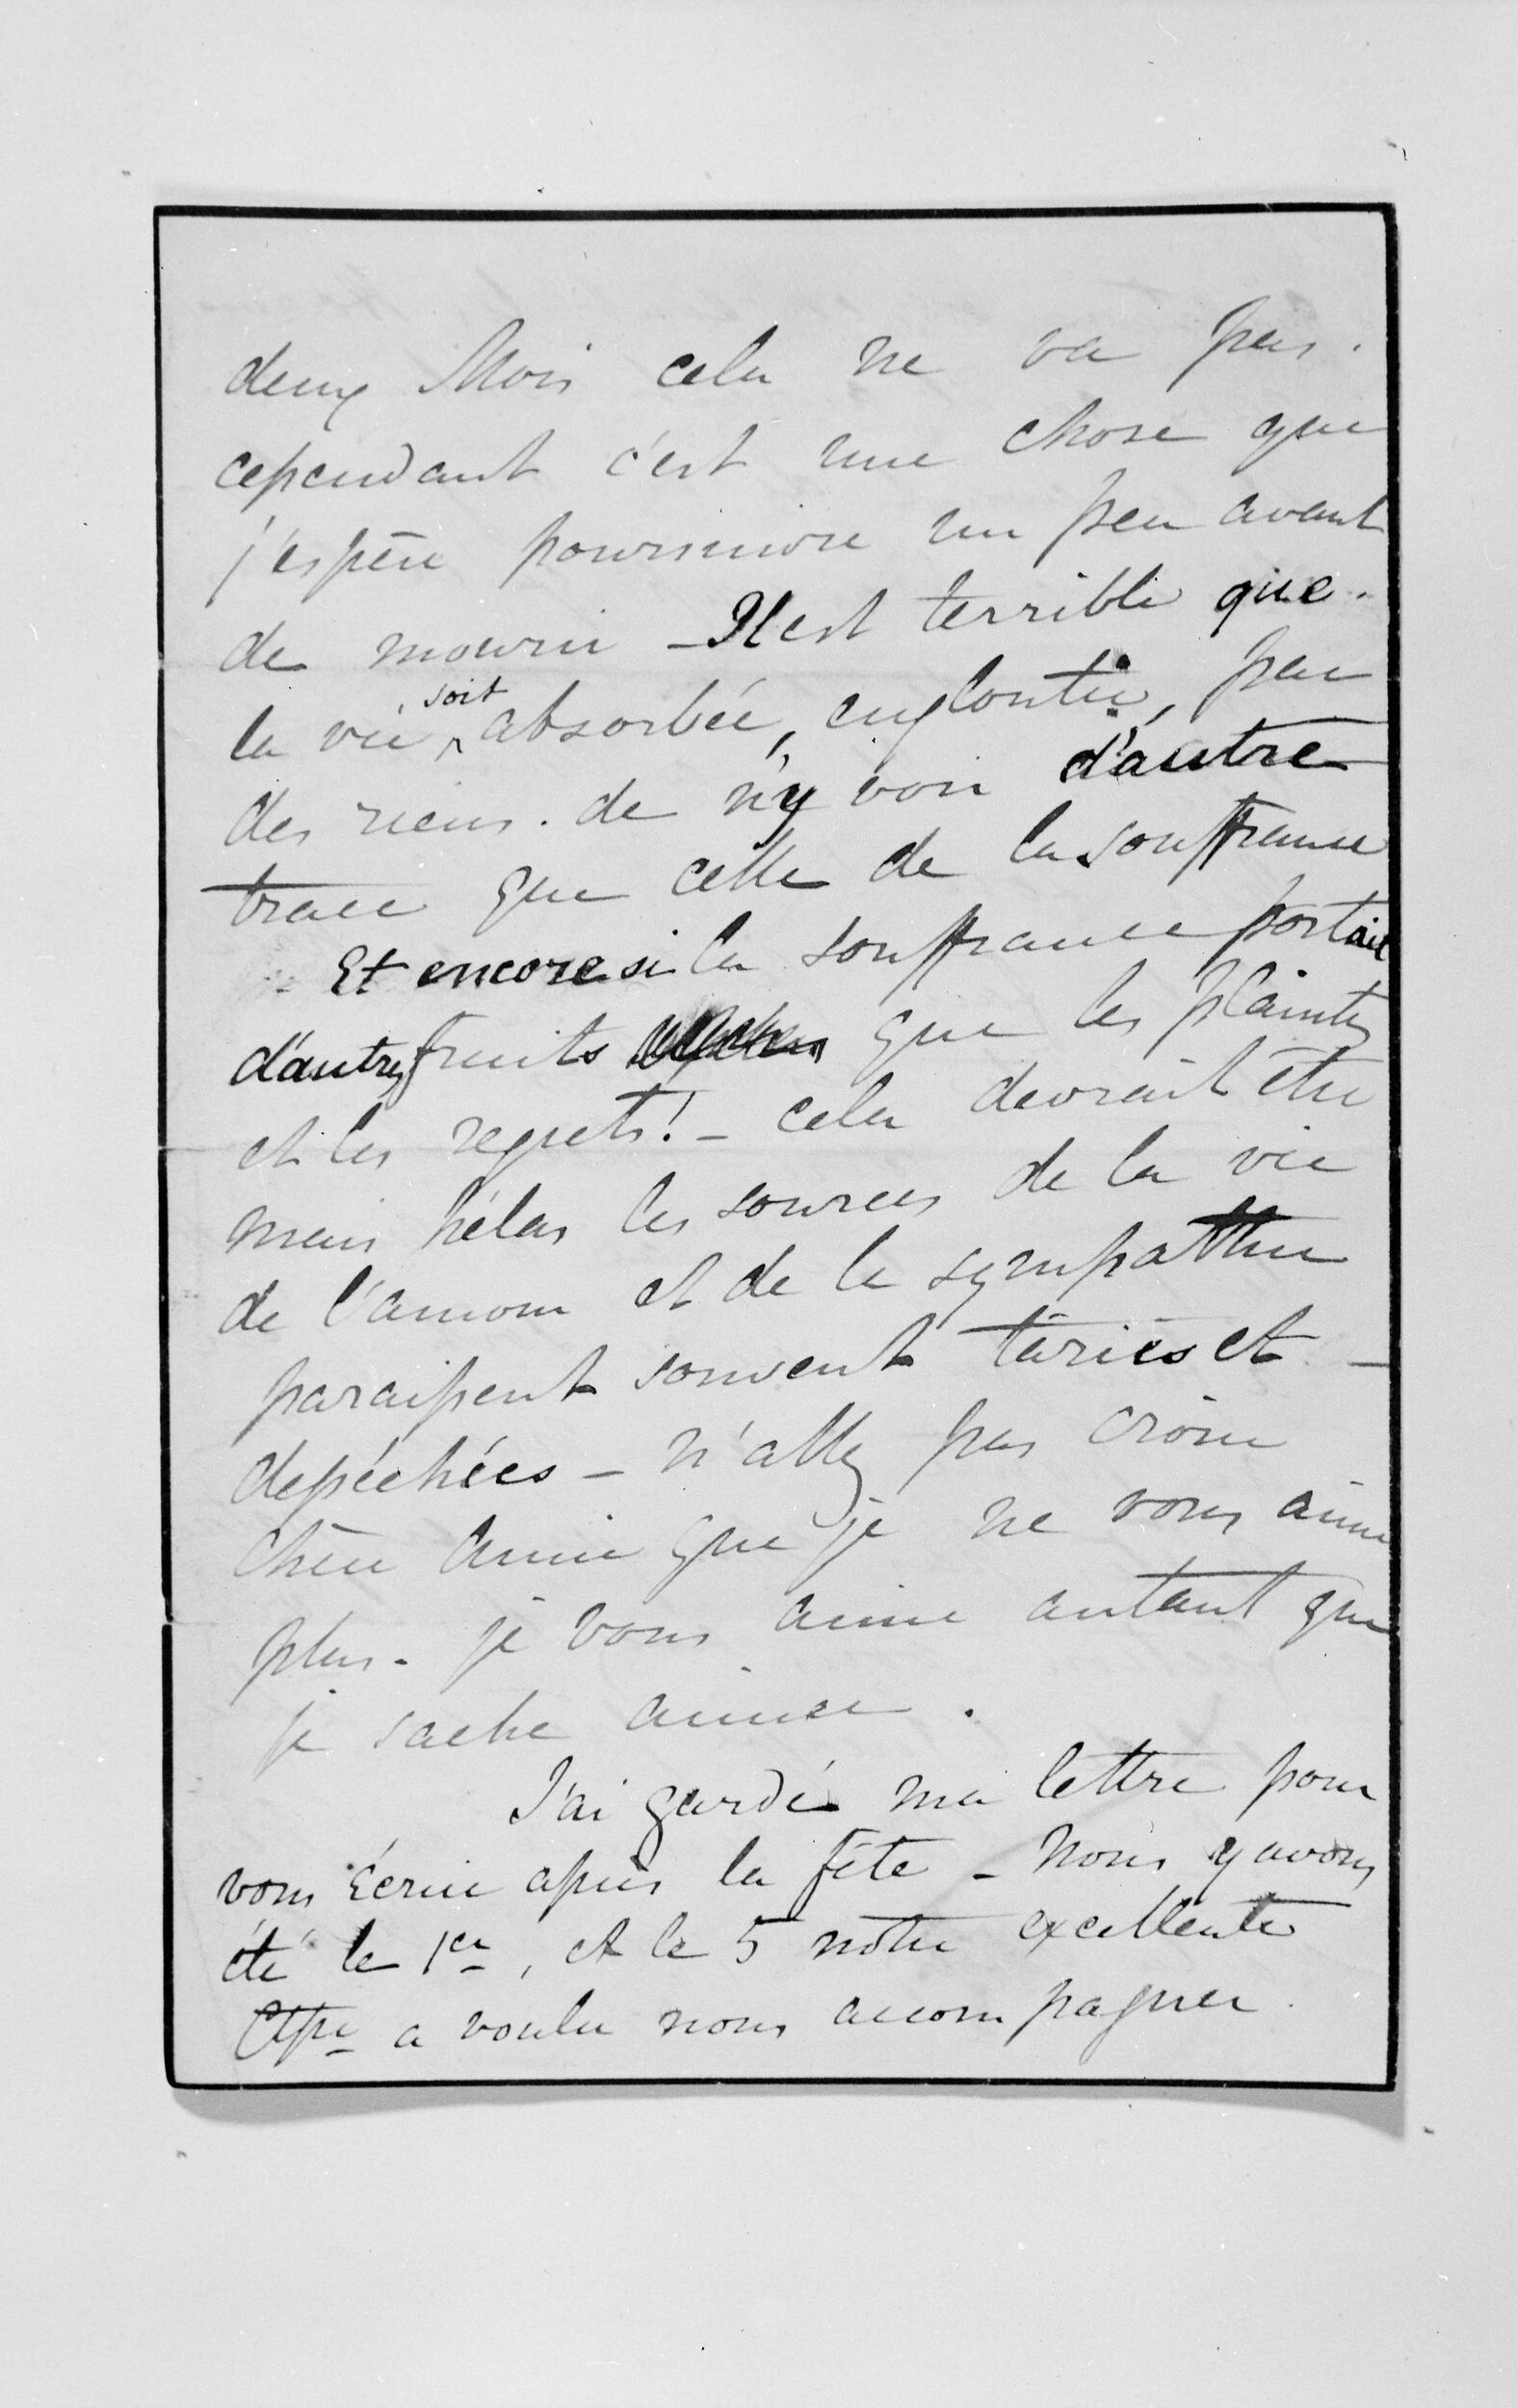 deux Mois cela ne va pas.
cependant c'est une chose que
j'espère poursuivre un peu avant
de mourir - Il est terrible que.
la vie, soit absorbée, engloutie, par
des riens. de n'y voir d'autre
trace que celle de la souffrance
Et encore si la souffrance portait
d'autres fruits que les plaintes
et les regrets! - cela devrait être
mais hélas les sources de la vie
de l'amour et de la sympathie
paraissent souvent taries et -
depéchées - n'allez pas croire
chère amie que je ne vous aime
plus. je vous aime autant que
je sache aimer.
J'ai gardé ma lettre pour
vous écrire après la fête - Nous y avons
été le 1er, et le 5 notre excellente
a voulu nous accompagner.